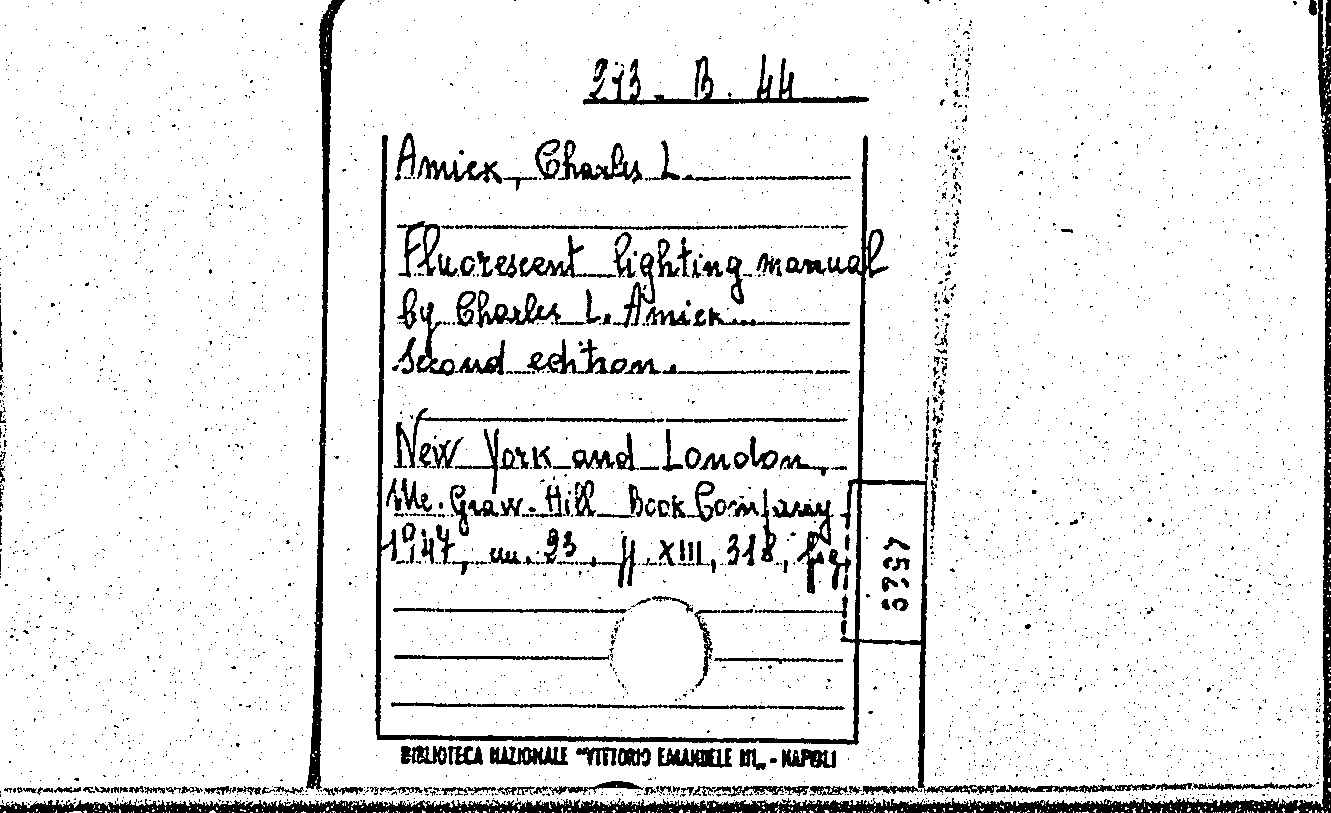 293. B. 44
Amick, Charles L.
Fluorescent lighting manual
by Charles L. Amick...
Second edition.
New York and London,
Mc. Graw. Hill Book Company
1947, in. 23, pp. XIII, 318, fig
4529
BIBLIOTECA NAZIONALE "VITTORIO EMANUELE III„ - NAPOLI